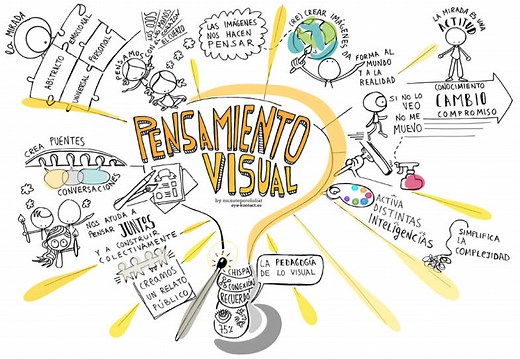 LA MIRADA
ABSTRACTO
EMOCIONAL
UNIVERSAL
PERSONAL
PENSAMOS
CON LAS
MANOS,
EL CUERPO
LAS IMÁGENES
NOS HACEN
PENSAR
(RE)CREAR IMÁGENES DA
FORMA AL
MUNDO
Y A LA
REALIDAD
LA MIRADA ES UNA
ACTITUD
CONOCIMIENTO
CAMBIO
COMPROMISO
SI NO LO
VEO
NO ME
MUEVO
PENSAMIENTO
VISUAL
eye-kontact.es
CREA PUENTES
CONVERSACIONES
NOS AYUDA A
PENSAR JUNTAS
Y A CONSTRUIR
COLECTIVAMENTE
CREAMOS
UN RELATO
PÚBLICO
CHISPA
CONEXIÓN
RECUERDO
75%
LA PEDAGOGÍA
DE LO VISUAL
ACTIVA
DISTINTAS
INTELIGENCIAS
SIMPLIFICA
LA
COMPLEJIDAD